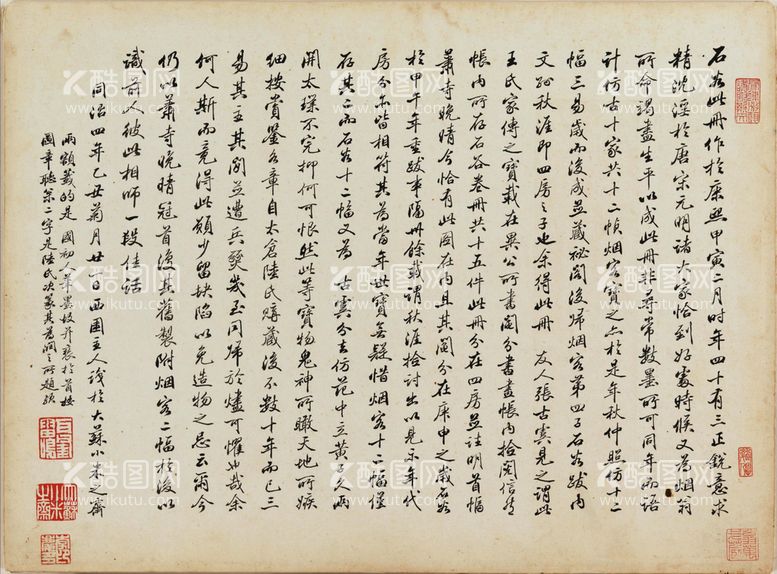 石谷此册作於康熙甲寅二月时年四十有三正銳意求
精沈淫於唐宋元明諸大家恰到好處時候又為烟翁
所命竭盡生平以成此册非尋常數墨所可同年而語
計仿古十家共十二幀烟客寶之亦於是年秋仲照仿十二
幅三易歲而後成並藏祕閣後歸烟客第四子石谷跋內
文孫秋涯即四房之子也余得此册 友人張古虞見之謂此
王氏家傳之寶載在異公所書鬮分書畫帳內拾閱信然
帳內所存石谷卷册共十五件此册分在四房並註明首幅
蕭寺晚晴今恰有此圖在內且其鬮分在庚申之歲石谷
於甲午年重跋事隔卅餘載謂秋涯拾討出以見示年代
房分亦皆相符其為當年世寶無疑惜烟客十二幅僅
存其二而石谷十二幅又為 古虞分去仿范中立黃子久兩
開太璞不完抑何可恨然此等寶物鬼神所瞰天地所嫉
細按賞鑒各章自太倉陸氏購藏後不數十年而已三
易其主其間並遭兵燹幾至同歸於燼可懼也哉余
何人斯而竟得此顧少留缺陷以免造物之忌云爾今
仍以蕭寺晚晴冠首復其舊製附烟客二幅於後以
識前人彼此相師一段佳話
同治四年乙丑菊月廿日西圃主人識於大蘇小米之齋
兩額籤的是 國初人筆墨故并裱於首按
圖章聽翁二字是陸氏